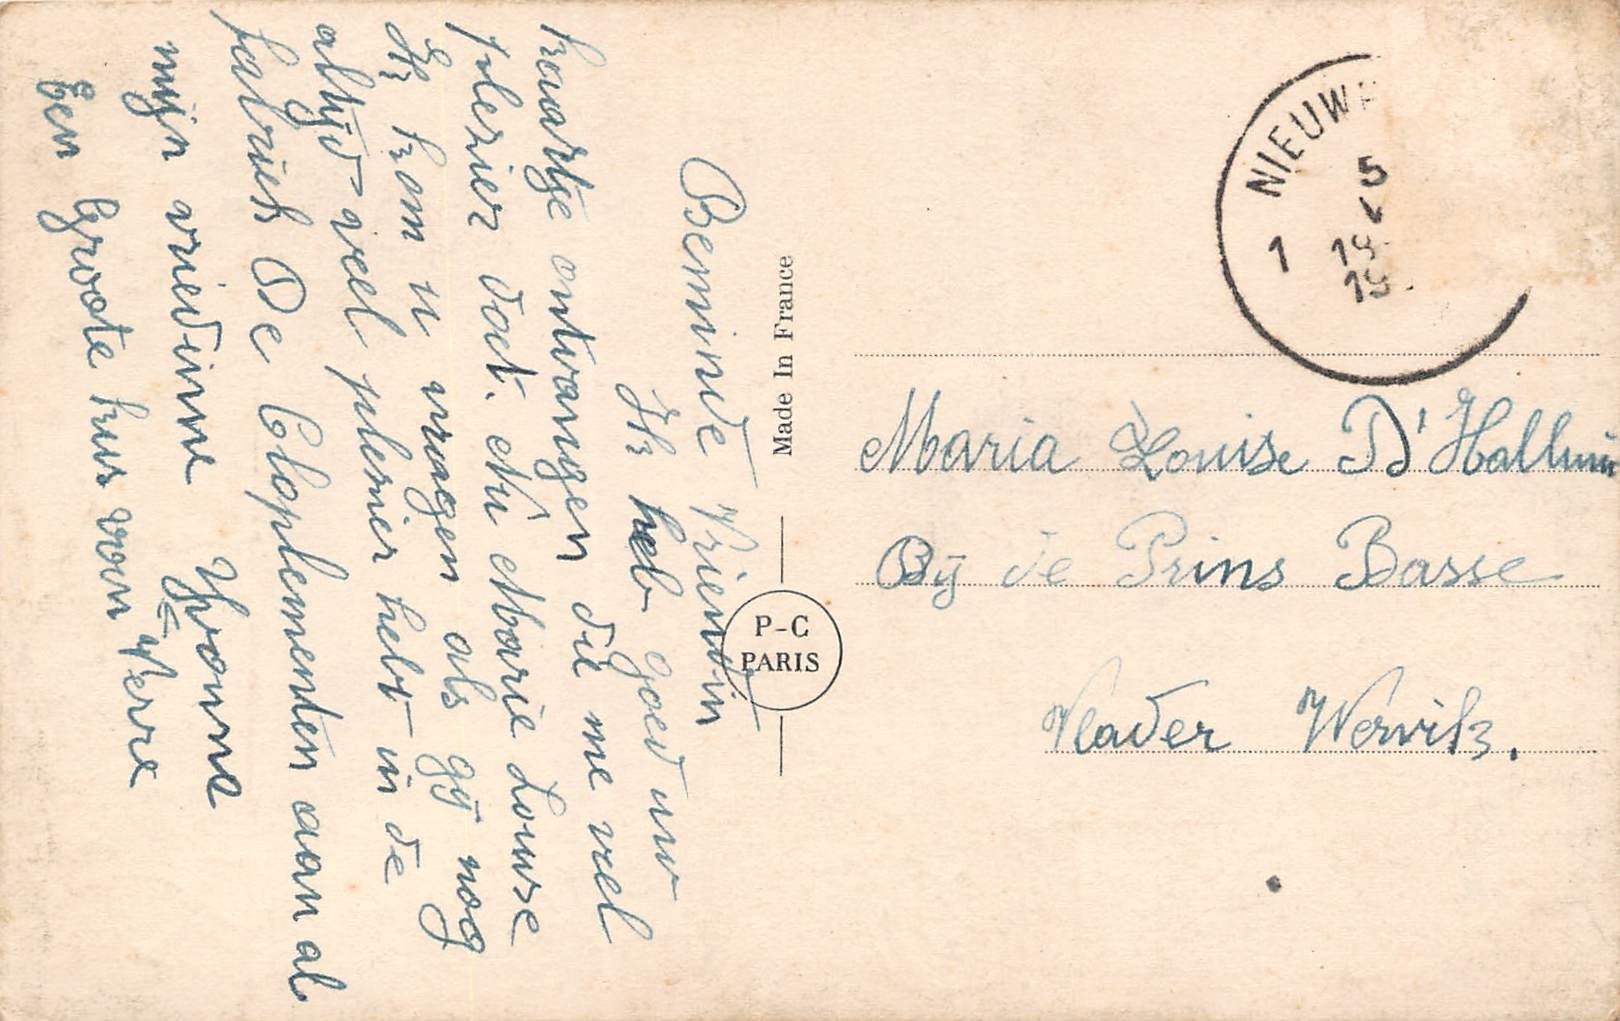 Beminde Vriendin
Ik heb goed uw
kaartje ontvangen die me veel
plezier doet. Nu Marie Louise
Ik kom u vragen als gij nog
altijd veel plesier hebt in de
fabriek De Complementen aan al
mijn vriedinne Yvonne
Een Groote kus van Verre
Made In France
P-C
PARIS
NIEUW
1
5
19
19
Maria Louise D'Halluin
Bij de Prins Basse
Vlader Wervik.